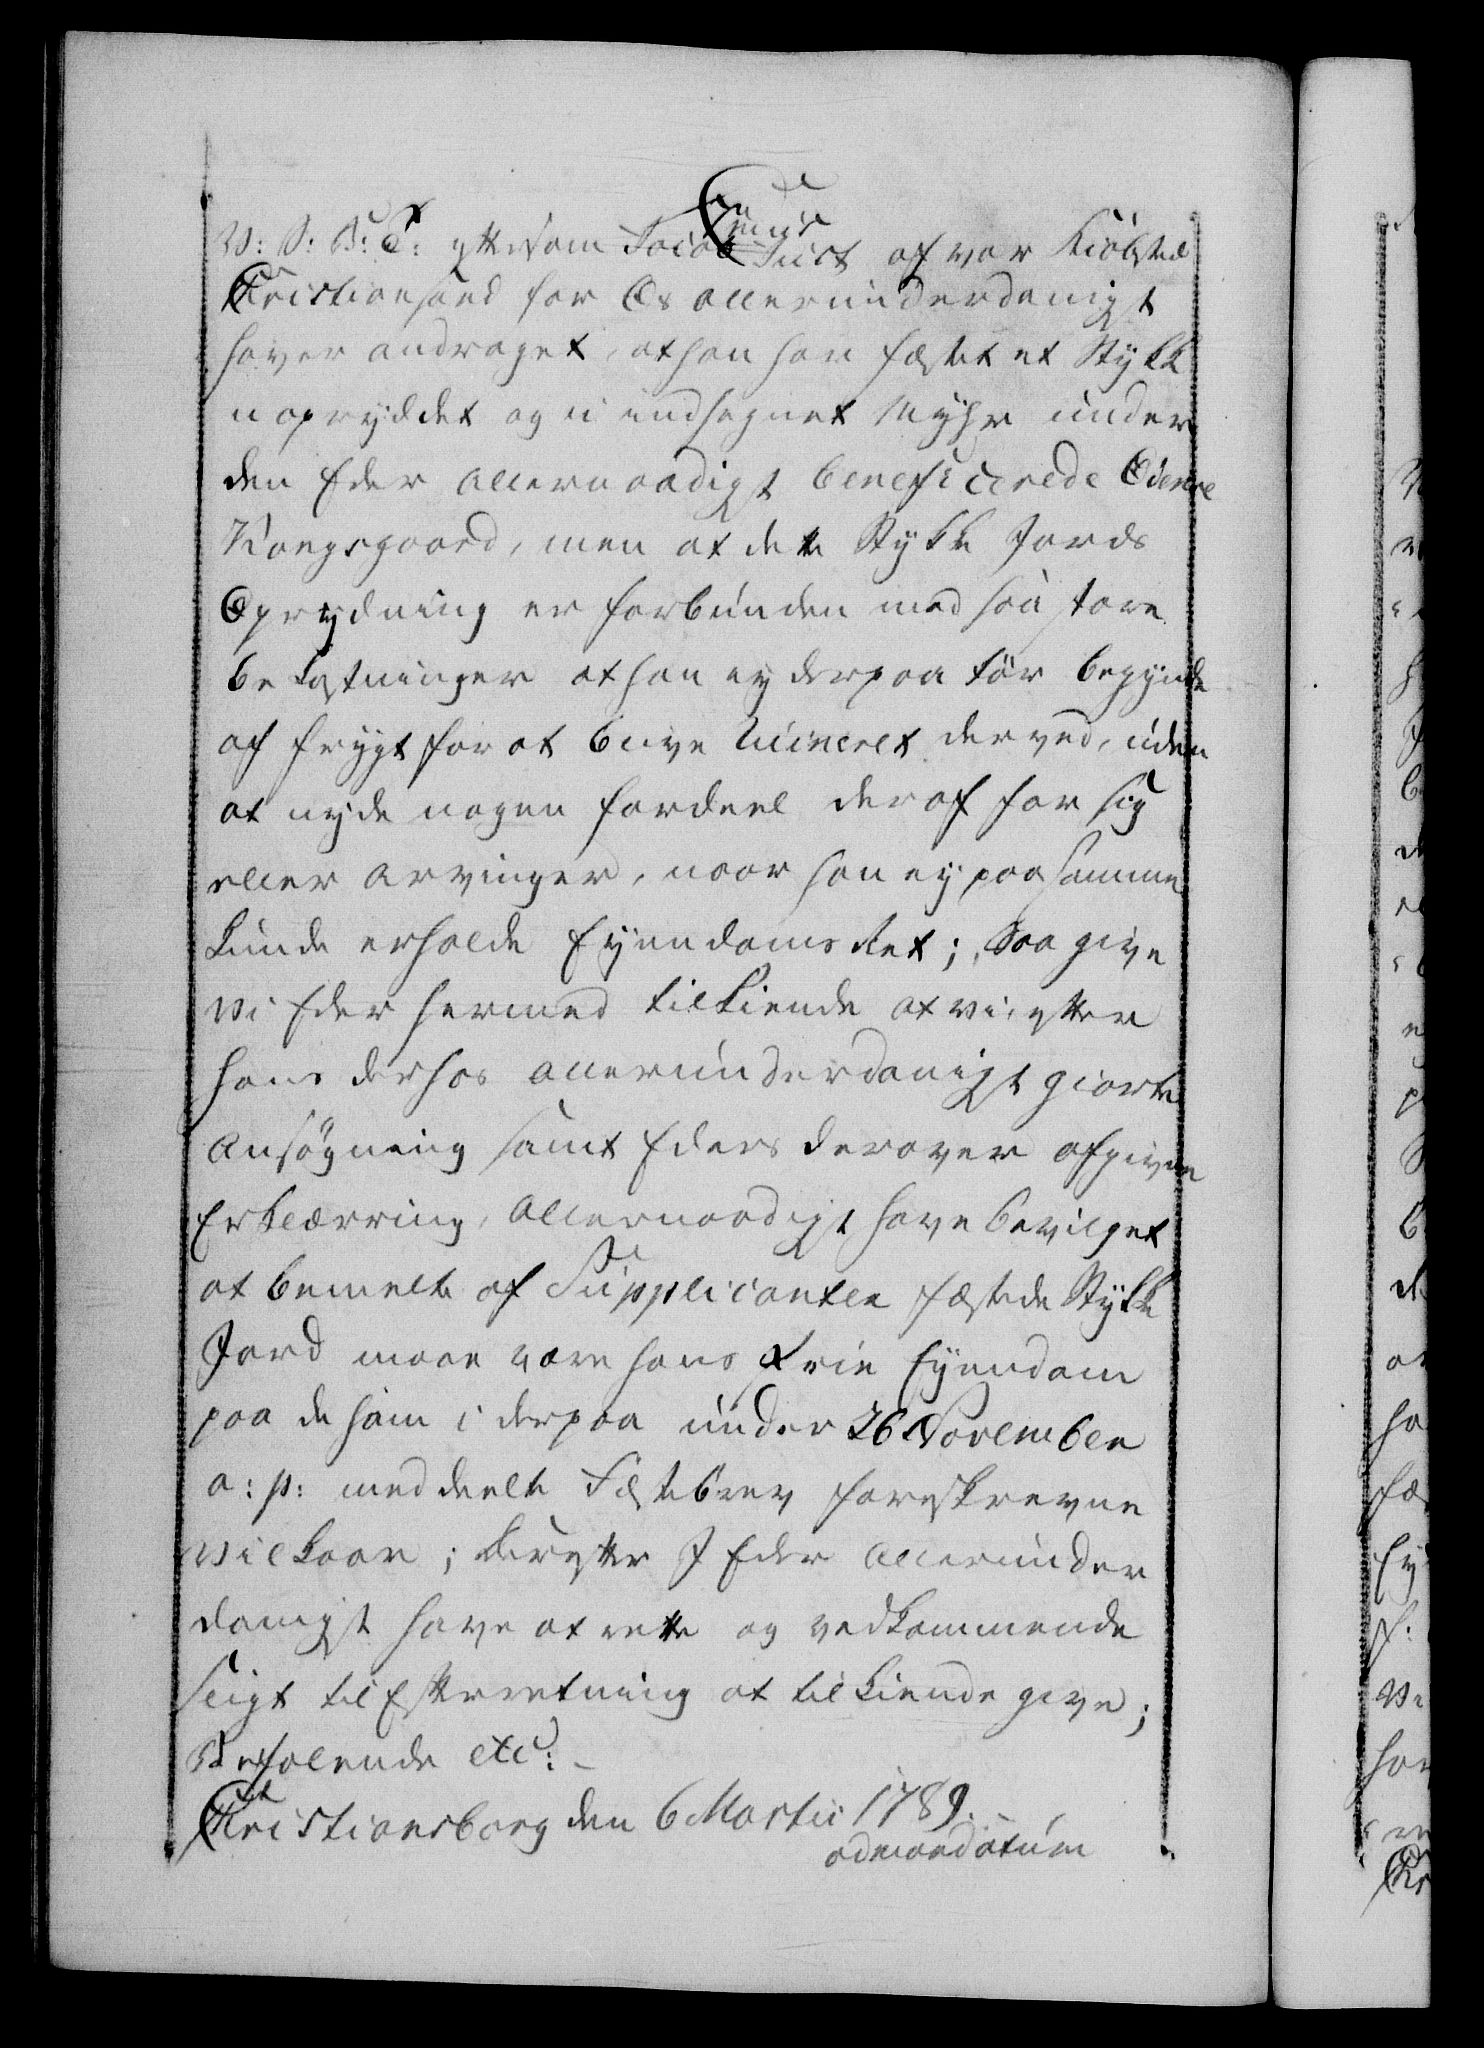 V: S: B: T: eftersom Jacob Just af vor Kiöbsted
Christiansand for Os allerunderdanigst
haver andraget, at han har fæstet et Stykke
uopryddet og uindhegnet Myhr under
den Eder allernaadigst beneficerede Odernes
Kongsgaard, men at dette Stykke Jords
Oprydning er forbunden med saa store
bekostninger at han ey derpaa tör begynde
af frygt for at blive Ruineret derved, uden
at nyde nogen fordeel deraf for sig
eller Arvinger, naar han ey paa samme
kunde erholde Eyendoms Ret; Saa give
Vi Eder hermed tilkiende at vi, efter
hans derhos allerunderdanigst giorte
Ansögning samt Eders derover afgivne
Erklærring, allernaadigst have bevilget
at bemelte af Supplicanten fæstede Stykke
Jord maae være hans frie Eyendom
paa de ham i derpaa under 26 November
a: p: meddeelte Fæstebrev foreskrevne
Vilkaar; derefter I Eder allerunder
danigst have at rette og vedkommende
sligt til Efterretning at tilkiende give;
Befalende etc:
Christiansborg den 6 Martii 1789.
ad mandatum